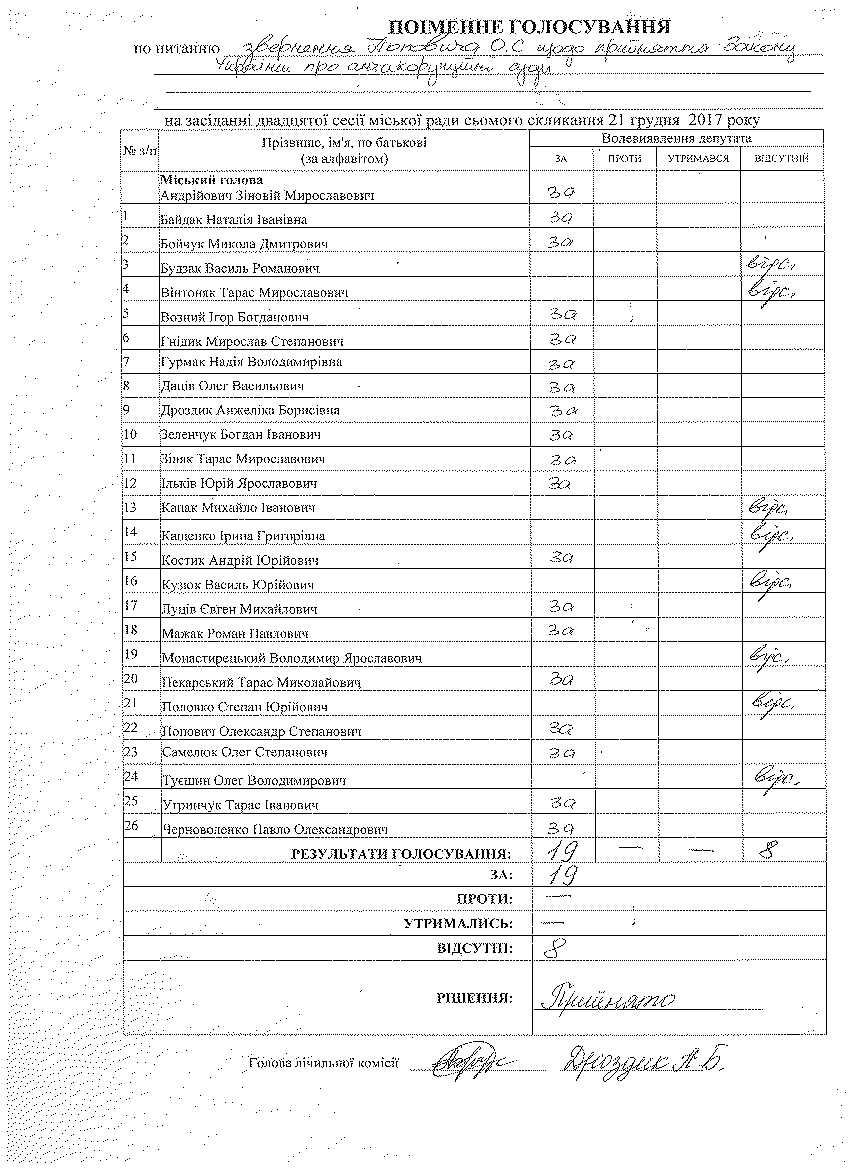 ПОІМЕННЕ ГОЛОСУВАННЯ
по питанню звернення Поповича О.С щодо прийняття Закону
України про антикорупційні суди
на засіданні двадцятої сесії міської ради сьомого скликання 21 грудня 2017 року
№ з/п Прізвище, ім'я, по батькові (за алфавітом) Волевиявлення депутата
ЗА ПРОТИ УТРИМАВСЯ ВІДСУТНІЙ
Міський голова
Андрійович Зіновій Мирославович за
1 Байдак Наталія Іванівна за
2 Бойчук Микола Дмитрович за
3 Будзак Василь Романович відс.
4 Вінтоняк Тарас Мирославович відс.
5 Возний Ігор Богданович за
6 Гнідик Мирослав Степанович за
7 Гурмак Надія Володимирівна за
8 Даців Олег Васильович за
9 Дроздик Анжеліка Борисівна за
10 Зеленчук Богдан Іванович за
11 Зіняк Тарас Мирославович за
12 Ільків Юрій Ярославович за
13 Капак Михайло Іванович відс.
14 Кащенко Ірина Григорівна відс.
15 Костик Андрій Юрійович за
16 Кузюк Василь Юрійович відс.
17 Луців Євген Михайлович за
18 Мажак Роман Павлович за
19 Монастирецький Володимир Ярославович відс.
20 Пекарський Тарас Миколайович за
21 Половко Степан Юрійович відс.
22 Попович Олександр Степанович за
23 Самелюк Олег Степанович за
24 Туєшин Олег Володимирович відс.
25 Угринчук Тарас Іванович за
26 Черноволенко Павло Олександрович за
РЕЗУЛЬТАТИ ГОЛОСУВАННЯ: 19 — — 8
ЗА: 19
ПРОТИ: —
УТРИМАЛИСЬ: —
ВІДСУТНІ: 8
РІШЕННЯ: Прийнято
Голова лічильної комісії Дроздик А Б.